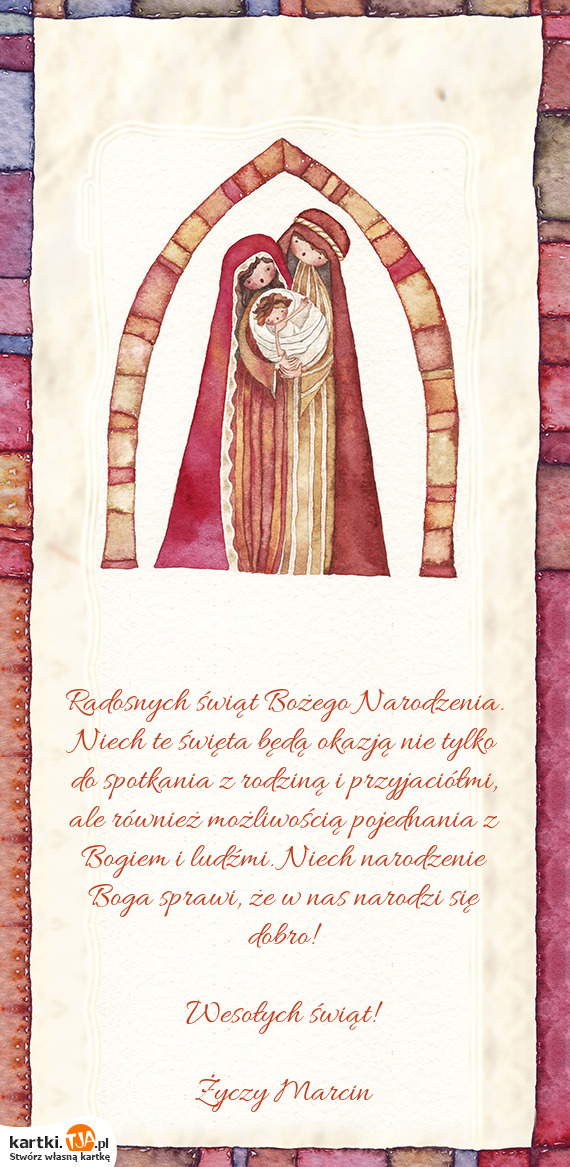 Radosnych świąt Bożego Narodzenia.
Niech te święta będą okazją nie tylko
do spotkania z rodziną i przyjaciółmi,
ale również możliwością pojednania z
Bogiem i ludźmi. Niech narodzenie
Boga sprawi, że w nas narodzi się
dobro!
Wesołych świąt!
Życzy Marcin
kartki.TJA.pl
Stwórz własną kartkę